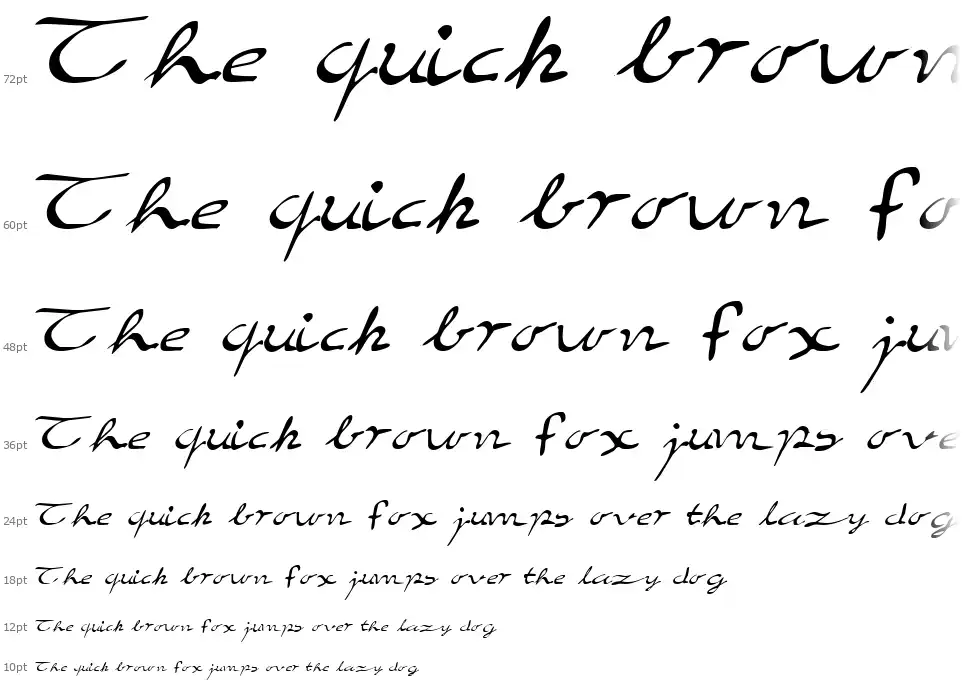 72pt The quick brown
60pt The quick brown fo
48pt The quick brown fox jum
36pt The quick brown fox jumps ove
24pt The quick brown fox jumps over the lazy dog
18pt The quick brown fox jumps over the lazy dog
12pt The quick brown fox jumps over the lazy dog
10pt The quick brown fox jumps over the lazy dog